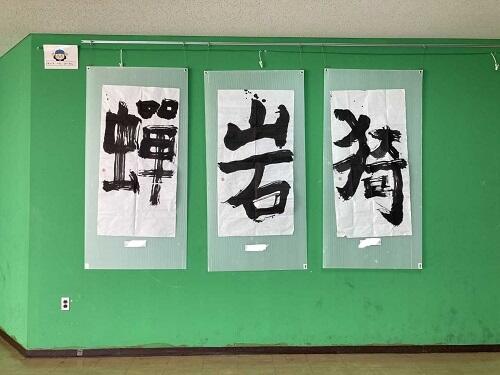 猗
岩
蟬